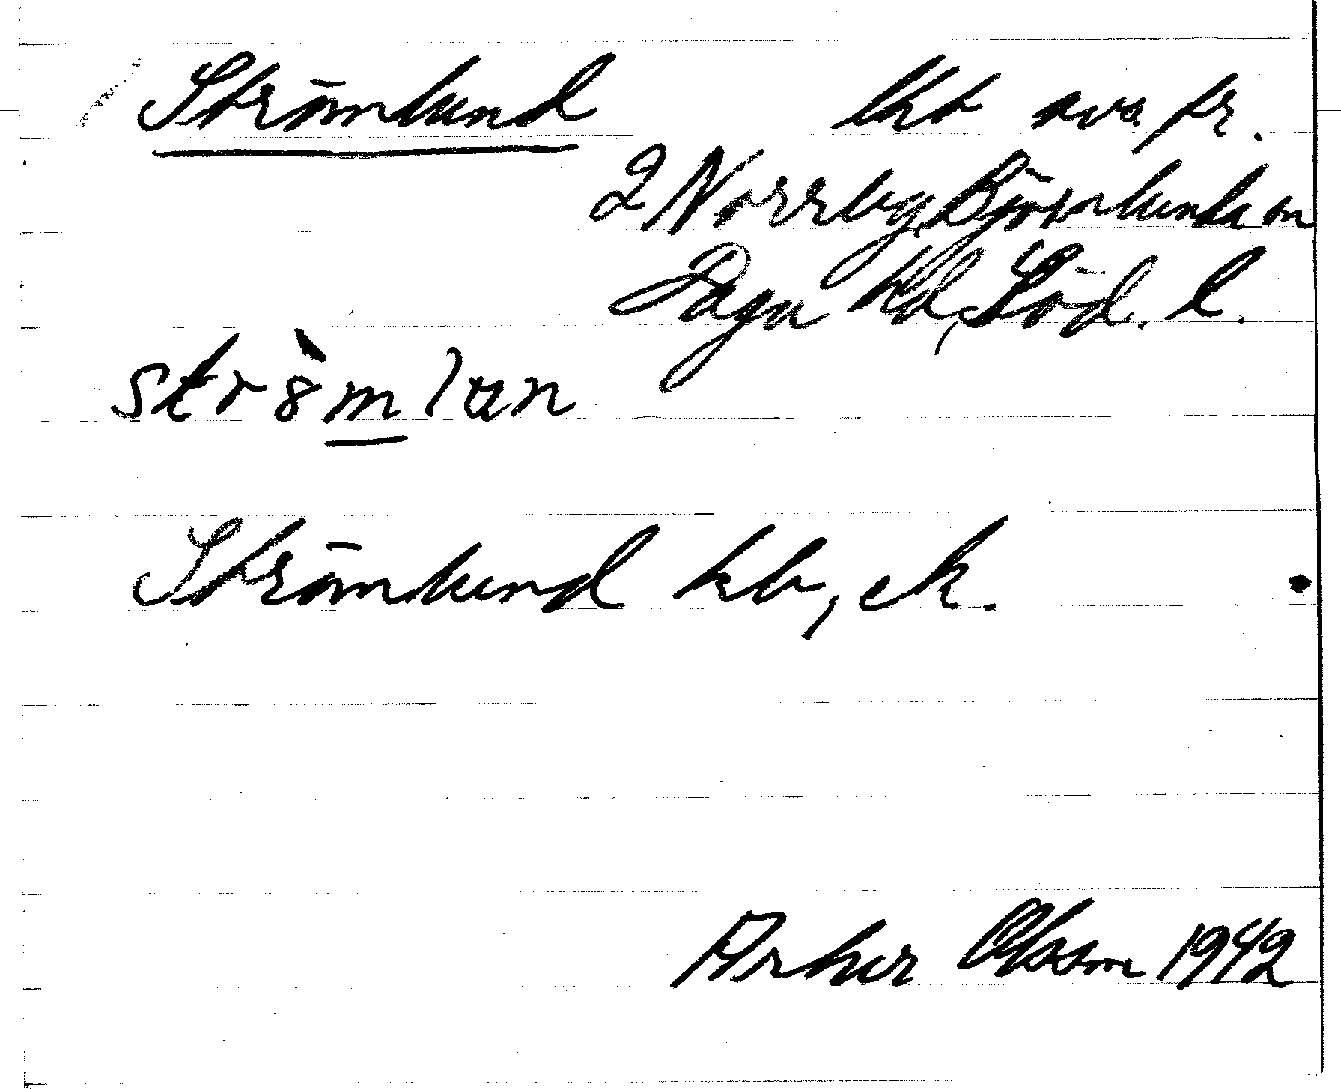 Strömlund lht avs. fr.
2 Norrby, Björnlunda sn
Daga hd, Söd. l.
strömlun
Strömlund kb, ek.
Arthur Olsson 1942